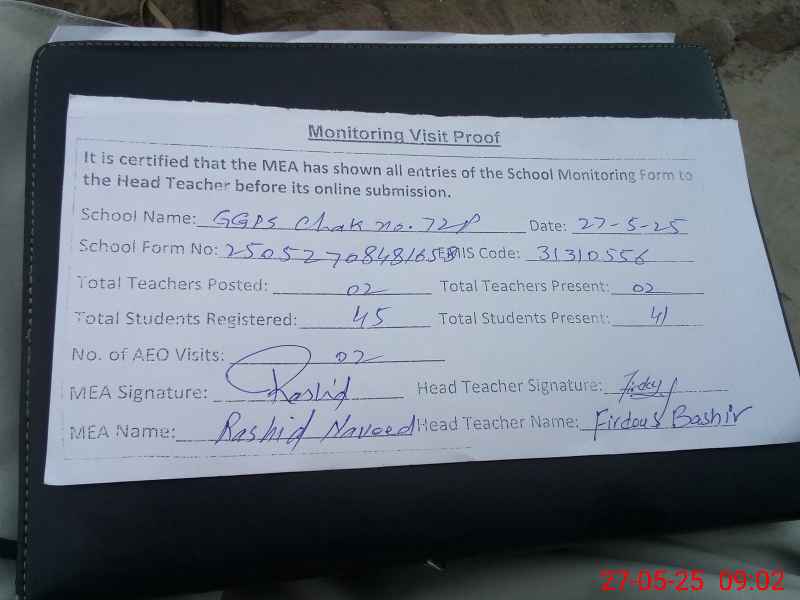 Monitoring Visit Proof
It is certified that the MEA has shown all entries of the School Monitoring Form to
the Head Teacher before its online submission.
School Name: GGPS Chak no. 72P Date: 27-5-25
School Form No: EMIS Code: 31310556
Total Teachers Posted: 02 Total Teachers Present: 02
Total Students Registered: 45 Total Students Present: 41
No. of AEO Visits: 02
MEA Signature: Rashid Head Teacher Signature:
MEA Name: Rashid Naveed Head Teacher Name: Firdous Bashir
27-05-25 09:02